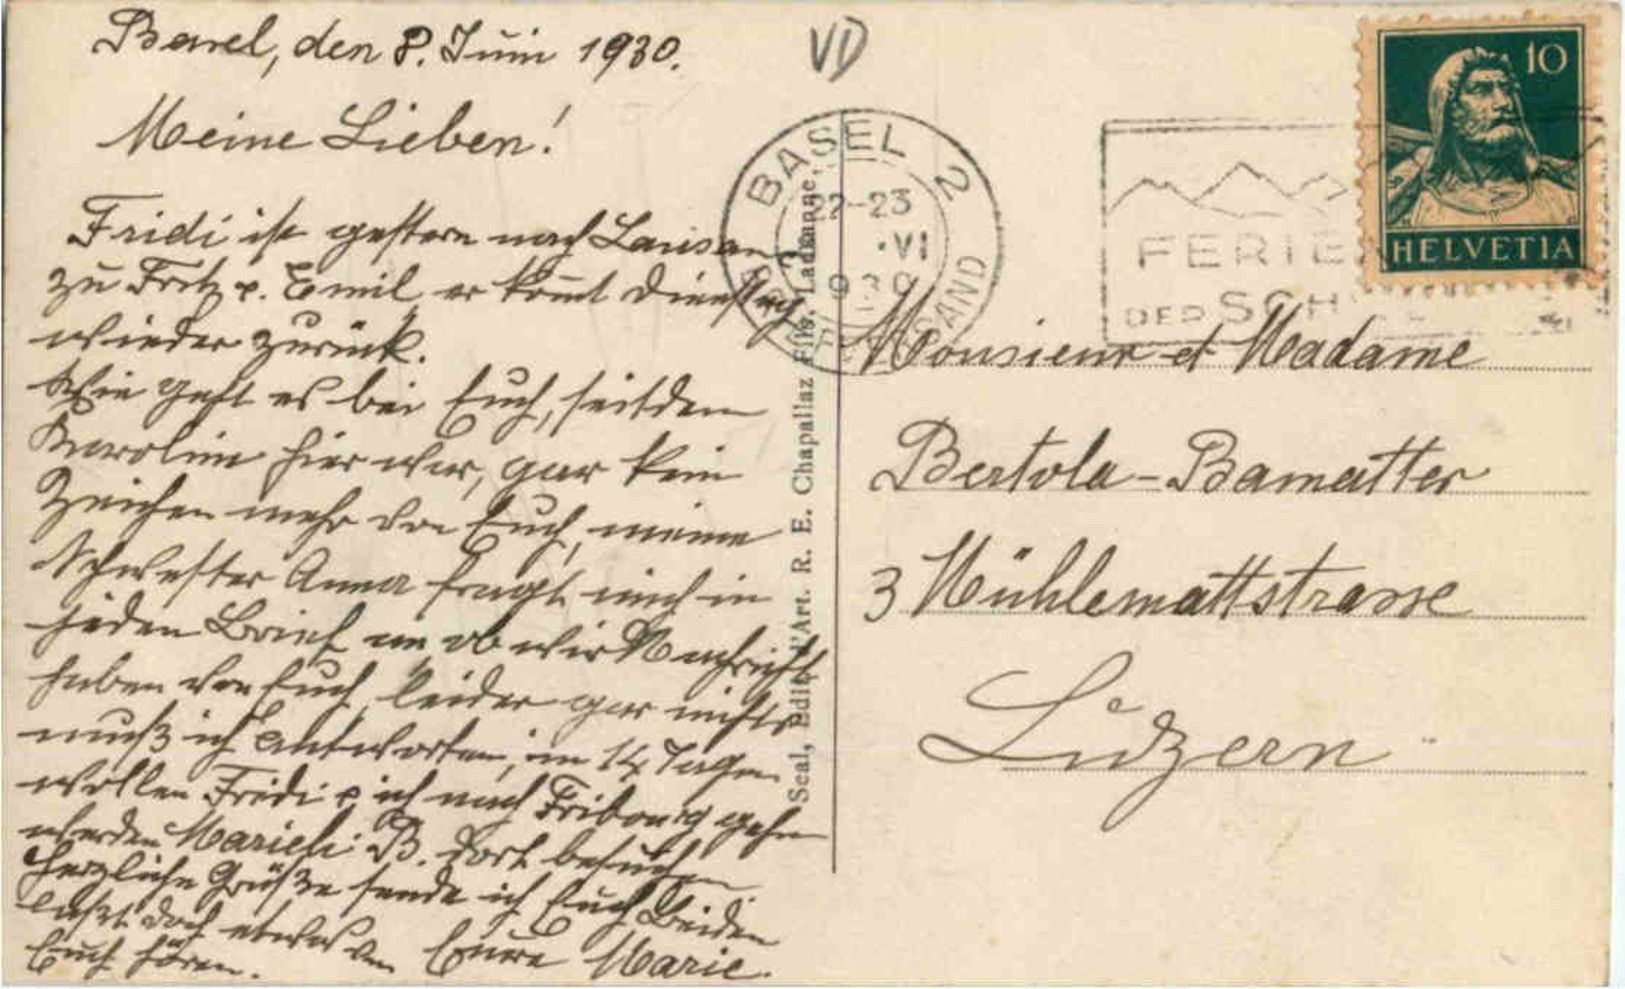 Basel, den 8. Juni 1930.
Meine Lieben!
Fridi ist gestern nach Lausann
zu Fritz e. Emil er komt Dienstag
wieder zurück.
Wie geht es bei Euch, seitdem
Karolin hier war, gar kein
Zeichen mehr von Euch, meine
Schwester Anna fragt mich in
jeden Brief an ob wir Nachricht
haben von Euch, leider gar nichts
muß ich Antworten, in 14 Tagen
wollen Fridi e ich nach Fribourg gehn
werden Marieli B. dort besuchen
Herzliche Grüße sende ich Euch Beiden
laßt doch etwas von Eure Marie.
Euch hören.
VD
BASEL 2
22-23
VI
1930
BRIEFVERSAND
FERIE
DER SCH
10
HELVETIA
Seal, Edit. d'Art. R. E. Chapallaz Fils, Lausanne.
Monsieur et Madame
Bertola-Bamatter
3 Mühlemattstrasse
Luzern